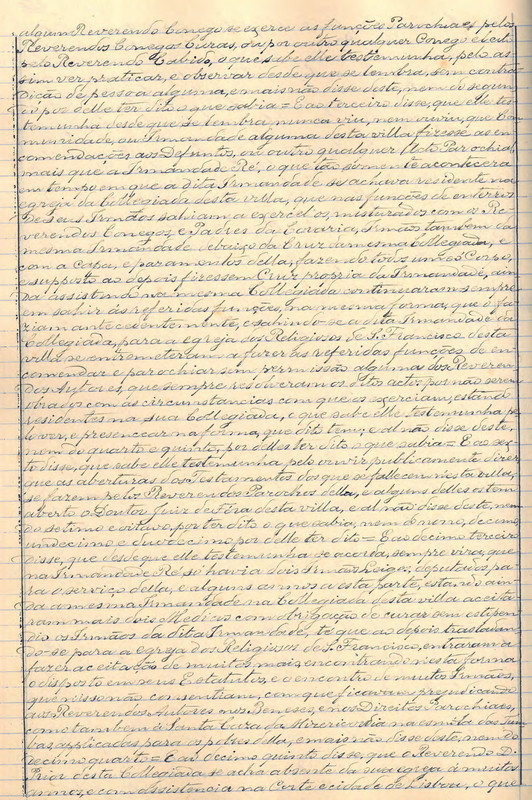 algum Reverendo Conego se exerce as funções Parochiaes pelos
Reverendos Conegos Curas, ou por outro qualquer Conego eleito
pelo Reverendo Cabido, o que sabe elle testemunha, pelo as-
sim ver praticar, e observar desde que se lembra, sem contra-
dicão de pessoa alguma, e mais não disse deste, nem do segun-
do por delle ter dito o que sabia = E ao terceiro disse, que elle tes-
temunha desde que se lembra nunca viu, nem ouviu, que Com-
munidade, ou Irmandade alguma desta villa fizesse as en-
comendações aos Defuntos, ou outro qualquer Acto Parochial
mais que a Irmandade Ré, o que tão somente acontecera
em tempo em que a dita Irmandade se achava residente na
egreja da Collegiada desta villa, que nas funções de enterros
de seus Irmãos sahiam a exercel-os, misturados com os Re-
verendos Conegos, e Padres da Coraria, Irmãos tambem da
mesma Irmandade debaixo da Cruz da mesma Collegiada, e
com a capa, e paramentos della, fazendo todos um só Corpo,
e supposto ao depois fizessem Cruz propria da Irmandade, ain-
da assistindo na mesma Collegiada continuaram sempre
em sahir ás referidas funções, na mesma forma, que o fa-
ziam antecedentemente, e sahindo-se a dita Irmandade da
Collegiada, para a egreja dos Religiosos de S. Francisco desta
villa se entrometeram a fazer as referidas funções de en-
comendar e parochiar sem permissão alguma dos Reveren-
dos Autores, que sempre resolveram os ditos actos por não serem
obrados com as circunstancias com que os exerciam, estando
residentes na sua Collegiada, e que sabe elle testemunha pe-
lo ver, e presencear na forma, que dito tem; e al não disse deste,
nem do quarto e quinto, por delles ter dito o que sabia = E ao sex-
to disse, que sabe elle testemunha pelo ouvir publicamente dizer
que as aberturas dos testamentos dos que se fallecem nesta villa,
se fazem pelos Reverendos Parochos della, e alguns delles os tem
aberto o Doutor Juiz de Fora desta villa, e al não disse deste, nem
do setimo e oitavo, por ter dito o que sabia, nem do nono, decimo,
undecimo e duodecimo por delle ter dito = E ao decimo terceiro
disse, que desde que elle testemunha se acorda, sempre vira, que
na Irmandade Ré, só havia dois Irmãos Leigos, deputados, pa-
ra o serviço della, e alguns annos a esta parte, estando ain-
da a mesma Irmandade na Collegiada desta villa aceita-
ram mais dois Medicos com obrigação de curar sem estipen-
dio os Irmãos da dita Irmandade, té que ao depois trasladan-
do-se para a egreja dos Religiosos de S. Francisco, entraram a
fazer aceitação de muitos mais, encontrando nesta forma
o disposto em seus Estatutos, e o encontro de muitos Irmãos,
que nisso não consentiam, com que ficavam prejudicando
aos Reverendos Autores nos Beneses, e nos Direitos Parochiaes,
como tambem á Santa Casa da Misericordia na esmola das tum-
bas, applicados para os pobres della, e mais não disse deste, nem do
decimo quarto = E ao decimo quinto disse, que o Reverendo D.
Prior desta Collegiada se acha absente da sua egreja á muitos
annos, e com assistencia na Corte e cidade de Lisboa, o que